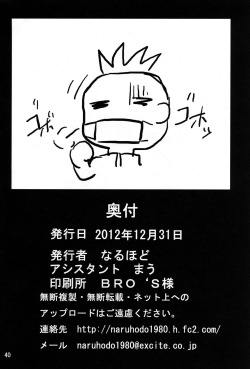 ゴホ
ゴホッ
奥付
発行日 2012年12月31日
発行者 なるほど
アシスタント まう
印刷所 BRO‘S様
無断複製・無断転載・ネット上への
アップロードはご遠慮ください。
連絡先 http://naruhodo1980.h.fc2.com/
メール naruhodo1980@excite.co.jp
40